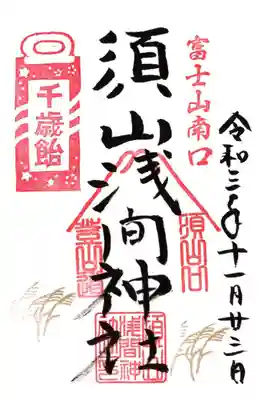 富士山南口
令和三年十一月廿三日
須山浅間神社
千歳飴
須山口
登山道